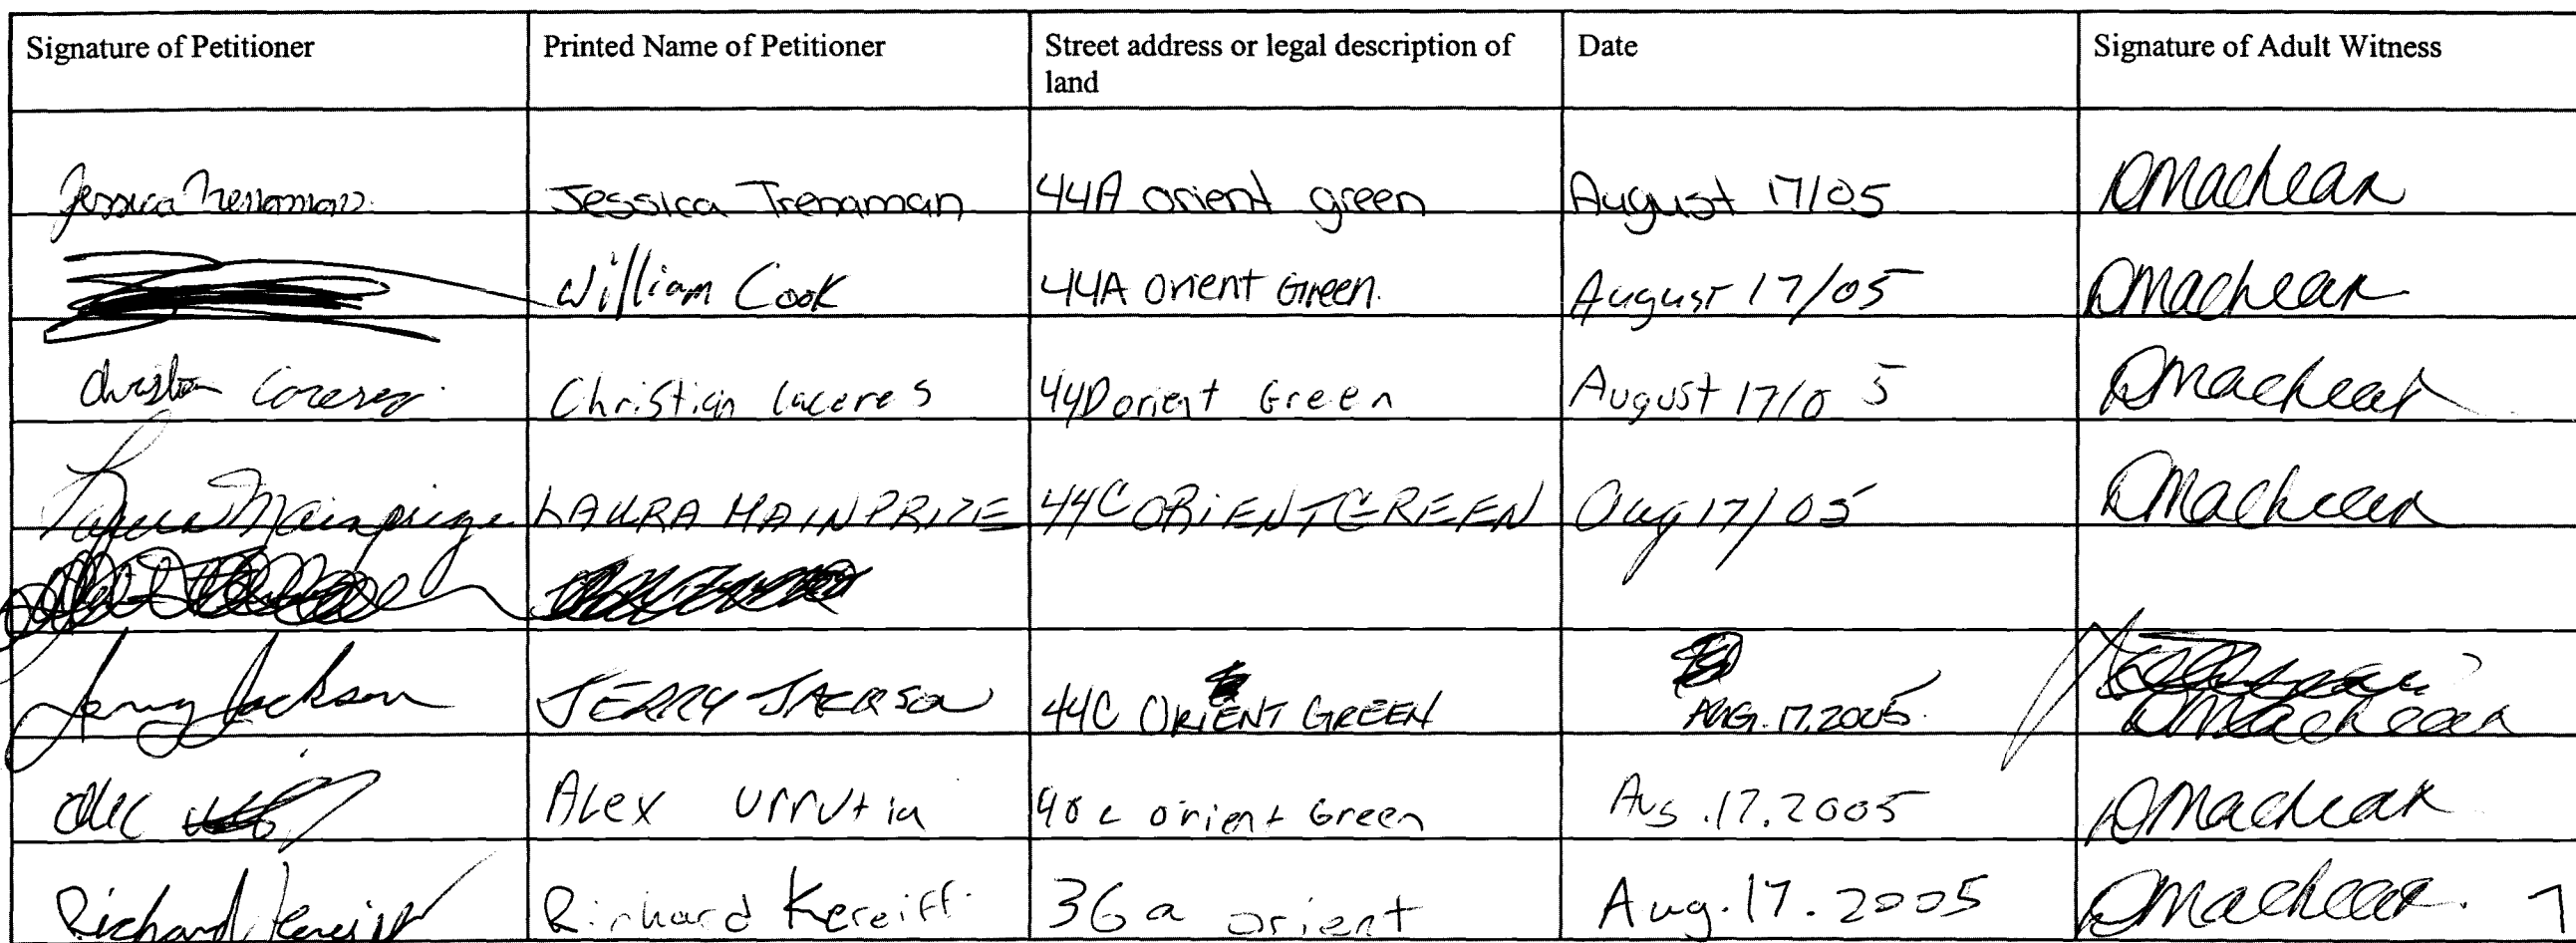 Signature of Petitioner Printed Name of Petitioner Street address or legal description of land Date Signature of Adult Witness
Jessica Trenaman Jessica Trenaman 44A orient green August 17/05 DMacLean
William Cook 44A Orient Green. August 17/05 DMacLean
Christian Caceres Christian Caceres 44D orient Green August 17/05 DMacLean
Laura Mainprize LAURA MAINPRIZE 44C ORIENT GREEN Aug 17/05 DMacLean
Jerry Jackson JERRY JACKSON 44C ORIENT GREEN AUG. 17. 2005. DMacLean
Alex Alex Urrutia 40c orient Green Aug. 17. 2005 DMacLean
Richard Kereiff Richard Kereiff 36a orient Aug. 17. 2005 DMacLean. 7